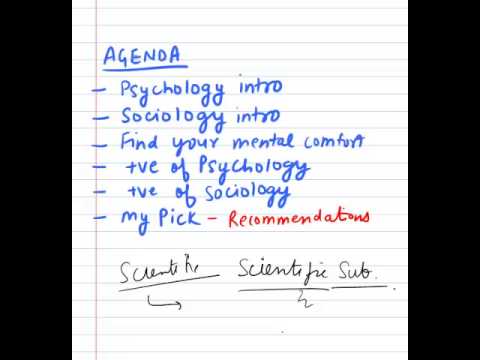 AGENDA
- Psychology intro
- Sociology intro
- Find your mental comfort
- +ve of Psychology
- +ve of Sociology
- My Pick - Recommendations
Scientific Sub.